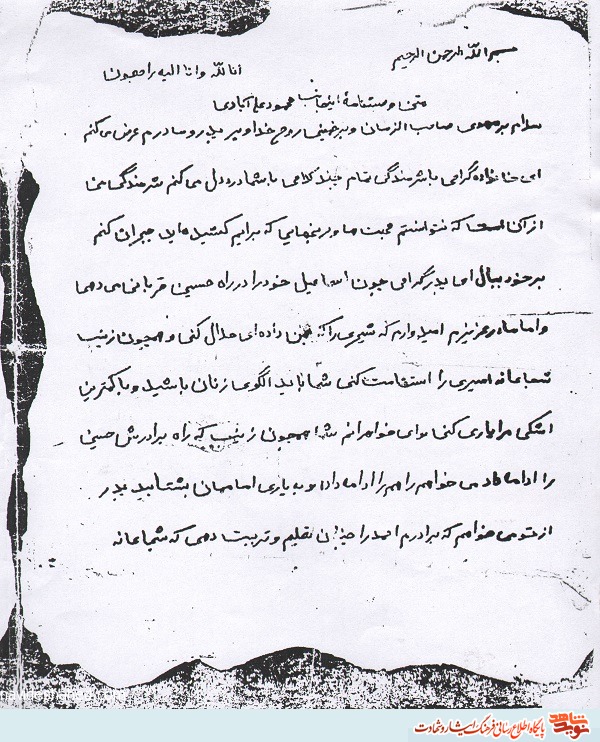 بسم الله الرحمن الرحیم
انا لله وانا الیه راجعون
متن وصیتنامهٔ اینجانب محمود علی آبادی
سلام بر مهدی صاحب الزمان و بر خمینی روح خدا و بر پدر و مادرم عرض می کنم
ای خانواده گرامی با شرمندگی تمام چند کلامی با شما درد دل می کنم شرمندگی من
از آن است که نتوانستم محبت ها و رنجهایی که برایم کشیده اید جبران کنم
بر خود ببال اما پدر گرامی چون اسماعیل خود را در راه حسین قربانی می دهی
و اما مادر عزیزم امیدوارم که شیری را که بمن داده ای حلال کنی و همچون زینب
شجاعانه اسیری را استقامت کنی شما باید الگوی زنان باشید و با کمترین
اشکی مرا یاری کنی و ای خواهرانم شما همچون زینب که راه برادرش حسین
را ادامه داد می خواهم راهم را ادامه داده و به یاری امامتان بشتابید پدر
از تو می خواهم که برادرم احمد را چنان تعلیم و تربیت دهی که شجاعانه
نوید شاهد
پایگاه اطلاع رسانی فرهنگ ایثار و شهادت